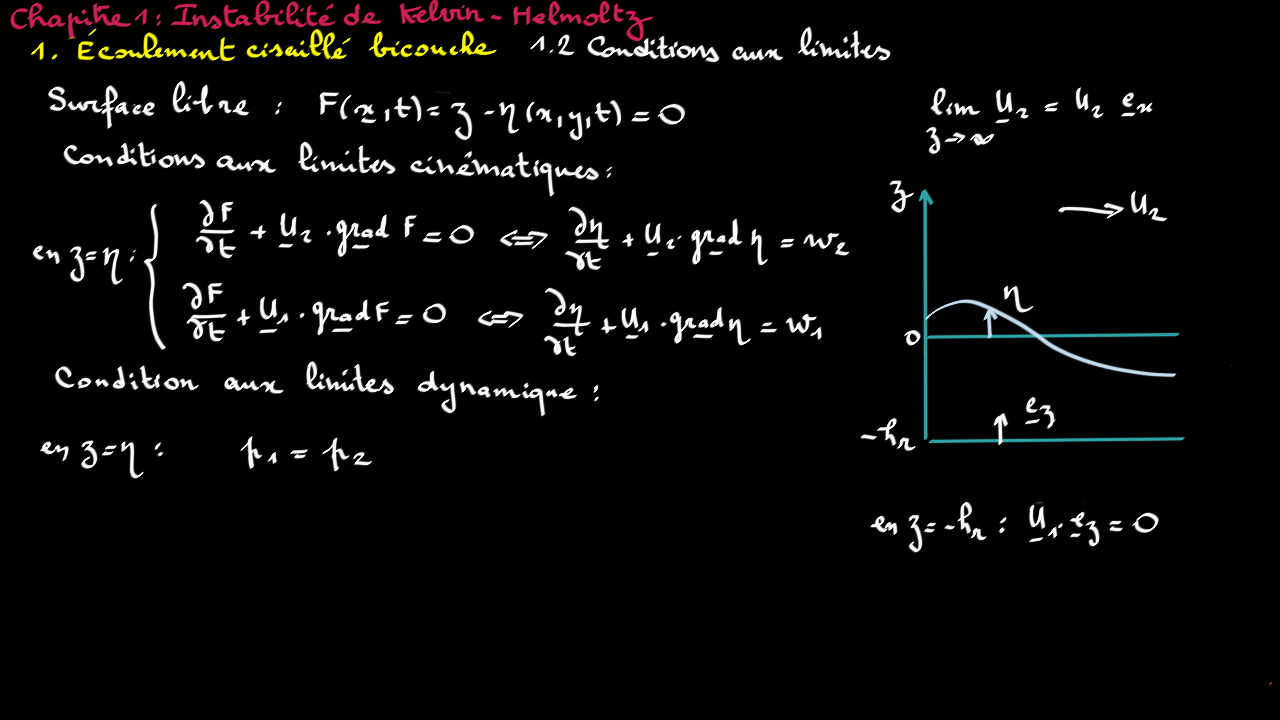 Chapitre 1 : Instabilité de Kelvin - Helmoltz
1. Écoulement cisaillé bicouche 1.2 Conditions aux limites
Surface libre : F(x,t) = z - η(x,y,t) = 0
lim U₂ = U₂ eₓ
z → ∞
Conditions aux limites cinématiques :
en z = η : ∂F/∂t + U₂ · grad F = 0 ⇔ ∂η/∂t + U₂ · grad η = w₂
∂F/∂t + U₁ · grad F = 0 ⇔ ∂η/∂t + U₁ · grad η = w₁
Condition aux limites dynamique :
en z = η : p₁ = p₂
z
→ U₂
η
0
e_z
-h₂
en z = -h₂ : U₁ · e_z = 0